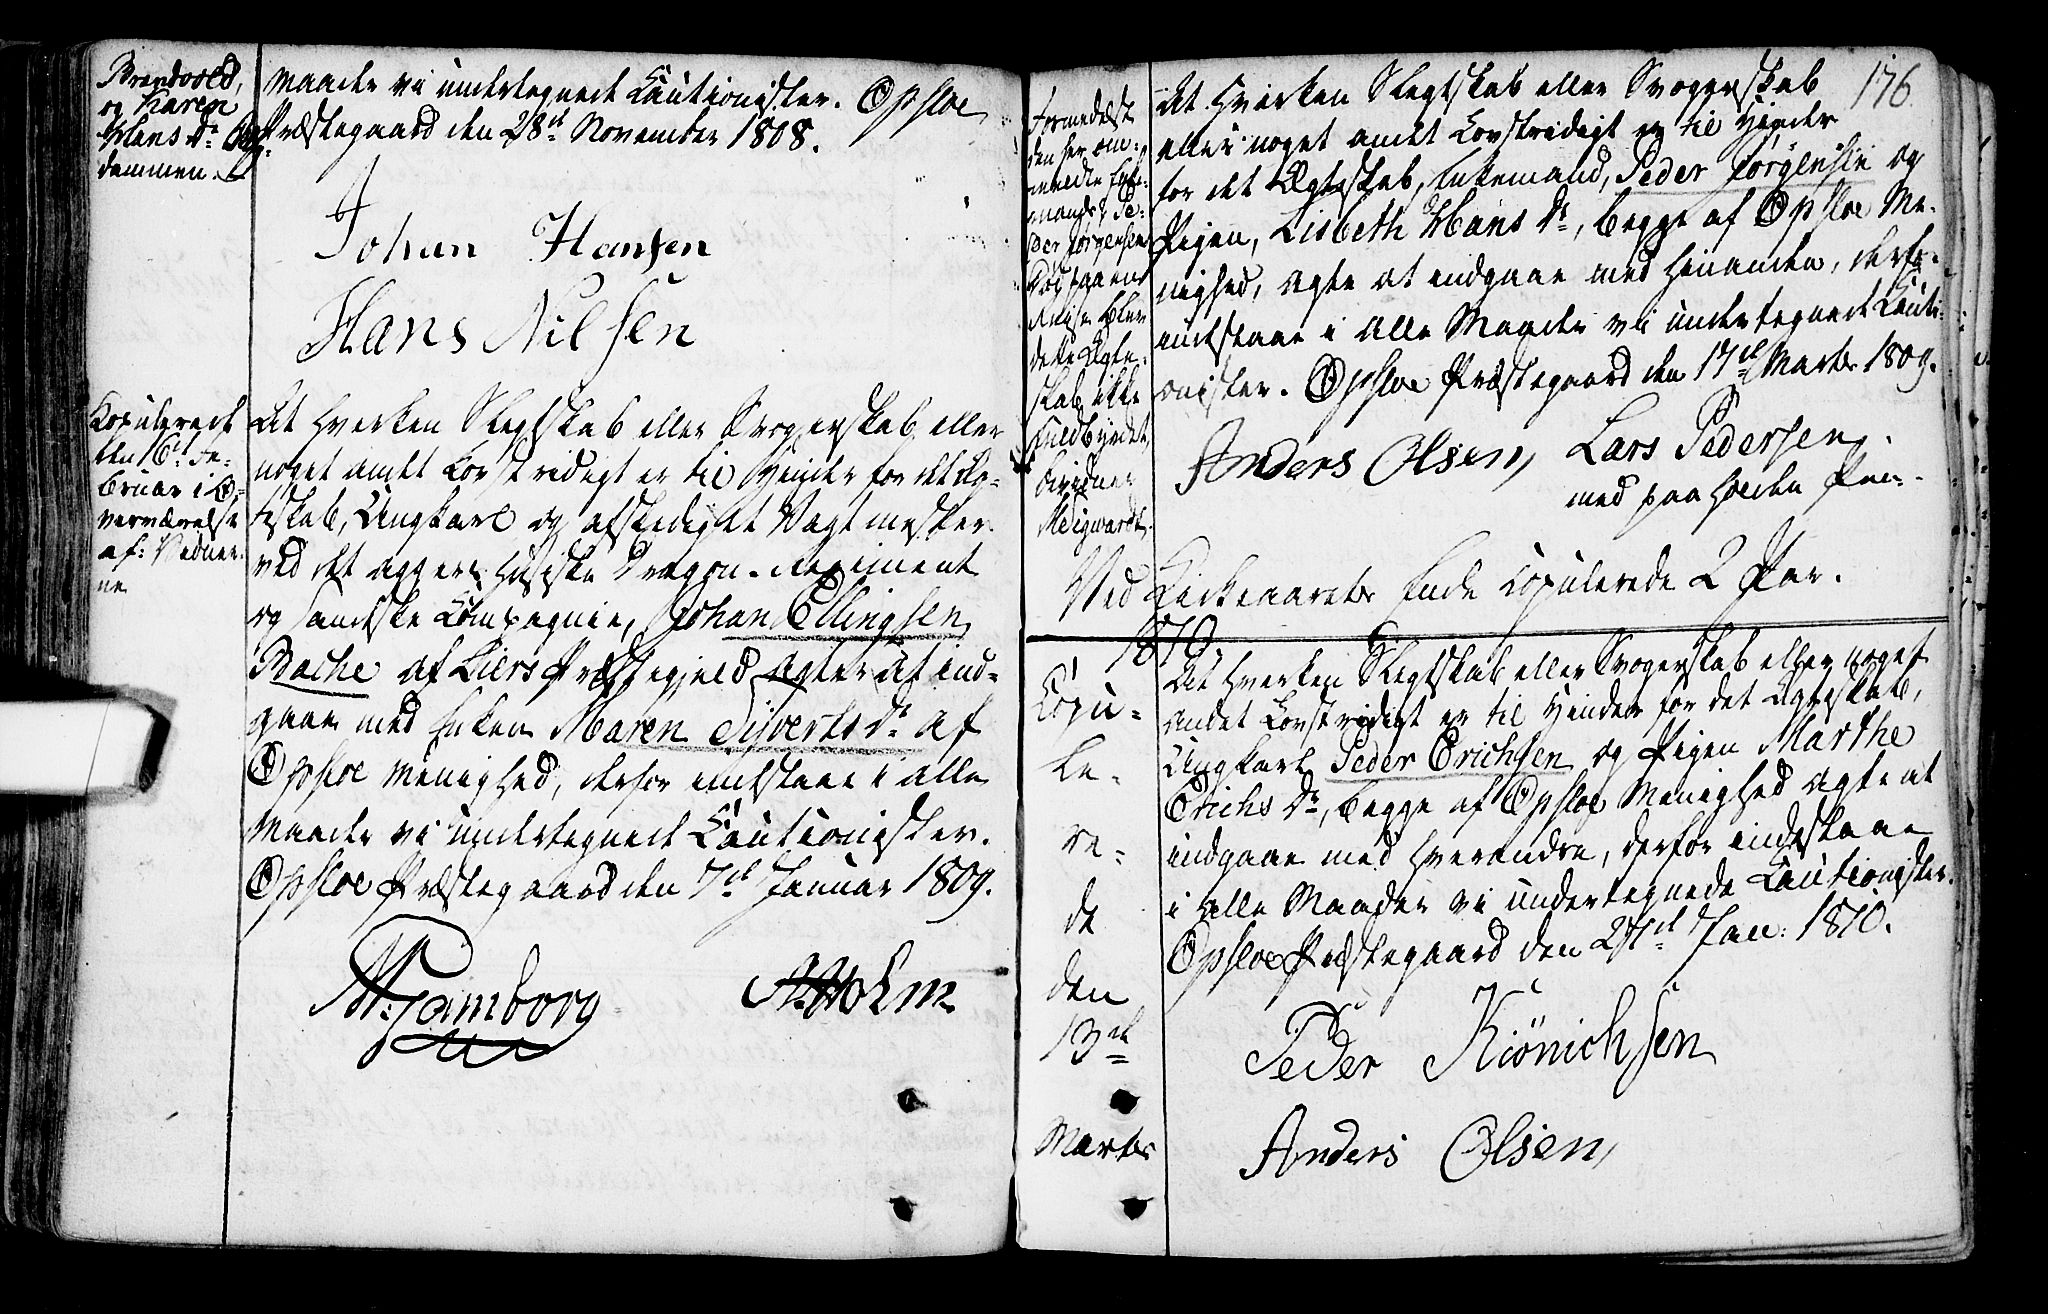 Brandvold,
og Karen
Hans Dr.
dammen.
Maader vi undertegnede Cautionister. Opsloe
Præstegaard den 28de November 1808.
Johan Hansen
Hans Nilsen
Kopulerede
den 16de Fe-
bruar i O-
verværelse
af: Vidner-
ne
At hverken Slegtskab eller Svogerskab eller
noget andet Lovstridigt er til Hinder for det Æg-
teskab, Ungkarl og afskediget Vagtmester
ved det aggershusiske Dragon-Regiment
og Compagnie, Johan Ellingsen
Bache af Liers Præstegjeld agter at ind-
gaae med Enken Maren Sijverts Dr. af
Opsloe Menighed, derfor indstaae i alle
Maader vi undertegnede Cautionister.
Opsloe Præstegaard den 7de Januar 1809.
M: Jamborg A. Holm
176.
Formedelst
den her om-
meldte Enke-
mands Pe-
der Jørgensens
paa en
Reise blev
dette Ægte-
skab ikke
fuldbyrdet,
bevidner
At hverken Slegtskab eller Svogerskab
eller noget andet Lovstridigt er til Hinder
for det Ægteskab, Enkemand, Peder Jørgensen og
Pigen, Lisbeth Hans Dr., begge af Opsloe Me-
nighed, agte at indgaae med hinanden, derfor
indstaae i alle Maader vi undertegnede Cauti-
onister. Opsloe Præstegaard den 17de Marts 1809.
Anders Olsen, Lars Pedersen
med paaholden Pen.
Ved Kirkeaarets Ende Copulerede 2 Par.
1810
Copu-
le-
re-
de
den
13de
Marts
At hverken Slegtskab eller Svogerskab eller noget
andet Lovstridigt er til Hinder for det Ægteskab,
Ungkarl Peder Erichsen og Pigen Marthe
Erichs Dr., begge af Opsloe Menighed agte at
indgaae med hverandre, derfor indestaae
i alle Maader vi undertegnede Cautionister.
Opsloe Præstegaard den 27de Jan: 1810.
Peder Kiönichsen
Anders Olsen,